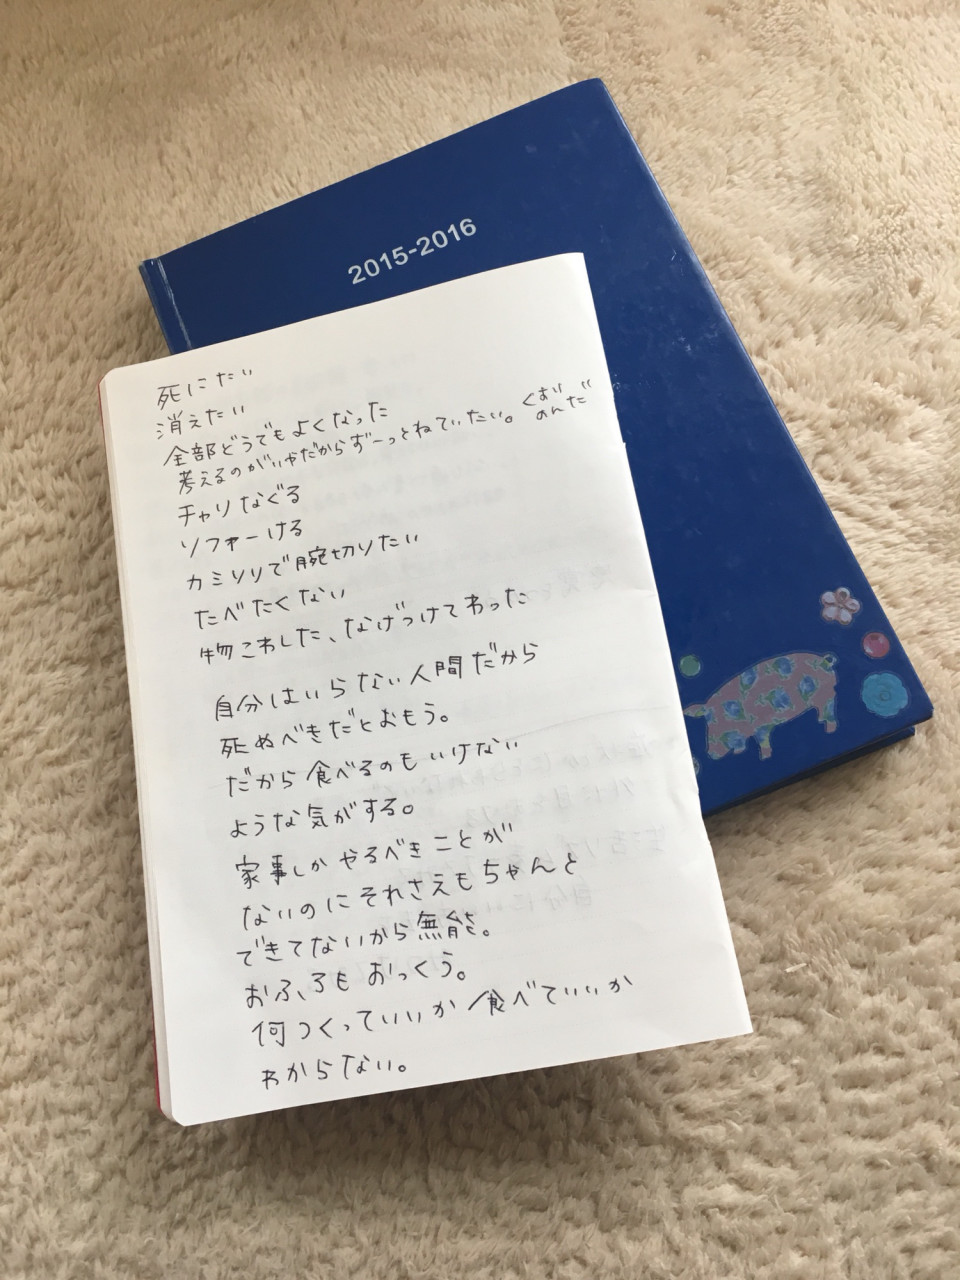 2015-2016
死にたい
消えたい
全部どうでもよくなった
考えるのがいやだからずーっとねていたい。くすり
のんだ
チャリなぐる
ソファーける
カミソリで腕切りたい
たべたくない
物こわした、なげつけてわった
自分はいらない人間だから
死ぬべきだとおもう。
だから食べるのもいけない
ような気がする。
家事しかやるべきことが
ないのにそれさえもちゃんと
できてないから無能。
おふろもおっくう。
何つくっていいか食べていいか
わからない。